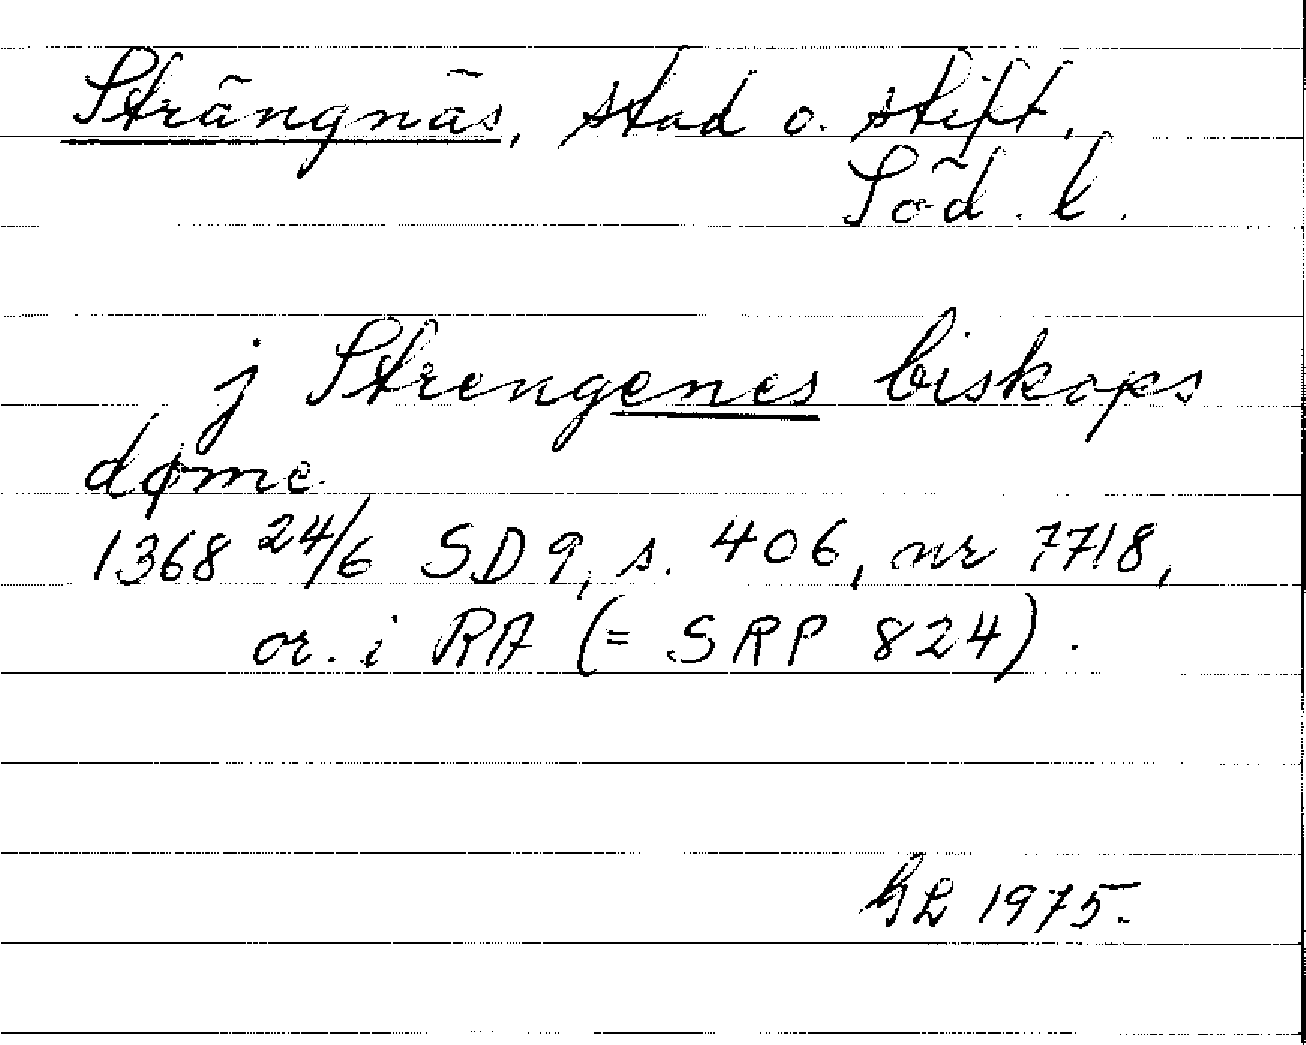 Strängnäs, stad o. stift,
Söd. l.
j Strengenes biskops
døme
1368 24/6 SD 9, s. 406, nr 7718,
or. i RA (= SRP 824).
GL 1975.